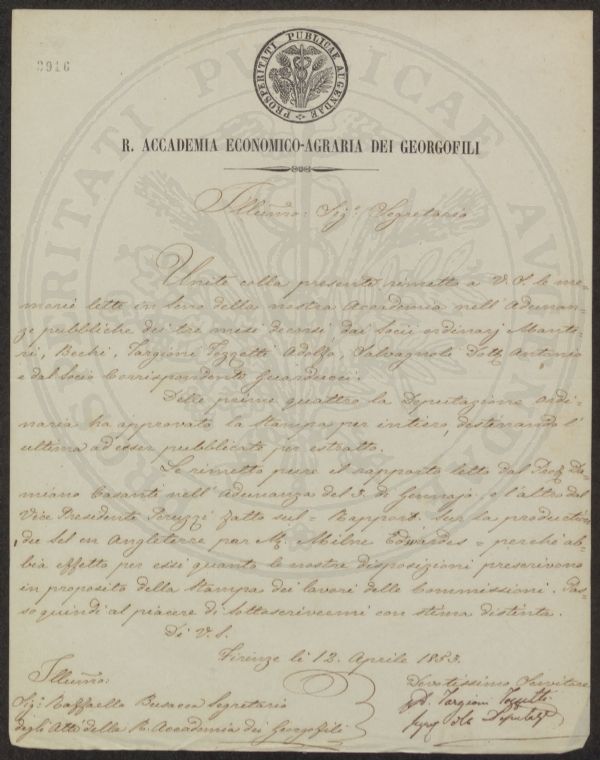 3916
PROSPERITATI PUBLICAE AUGENDAE
R. ACCADEMIA ECONOMICO-AGRARIA DEI GEORGOFILI
Illumo: Sigr Segretario
Unite colla presente rimetto a V. S. le me-
morie lette in seno della nostra Accademia nell'Adunan-
ze pubbliche dei tre mesi decorsi dai Socii ordinarj
Bechi, Targioni Tozzetti Adolfo, Salvagnoli Dott. Antonio
e dal Socio Corrispondente
Delle prime quattro la Deputazione ordi-
naria ha approvato la stampa per intiero, destinando l'
ultima ad esser pubblicata per estratto.
Le rimetto pure il rapporto letto dal Prof. Da-
miano Casanti nell'adunanza del 9. di Gennajo, e l'altro del
Vice Presidente Peruzzi fatto sul = Rapport sur la production
du Sel en Angleterre par Mr. Milne Edwardes = perchè ab-
bia effetto per essi quanto le nostre disposizioni prescrivono
in proposito della stampa dei lavori delle Commissioni. Pas-
so quindi al piacere di sottoscrivermi con stima distinta.
Di V. S.
Firenze li 12. Aprile 1853.
Illumo:
Devotissimo Servitore
Sigr Raffaello Busacca Segretario
Ad. Targioni Tozzetti
degli Atti della R. Accademia dei Georgofili
Segr. della Deputaz.